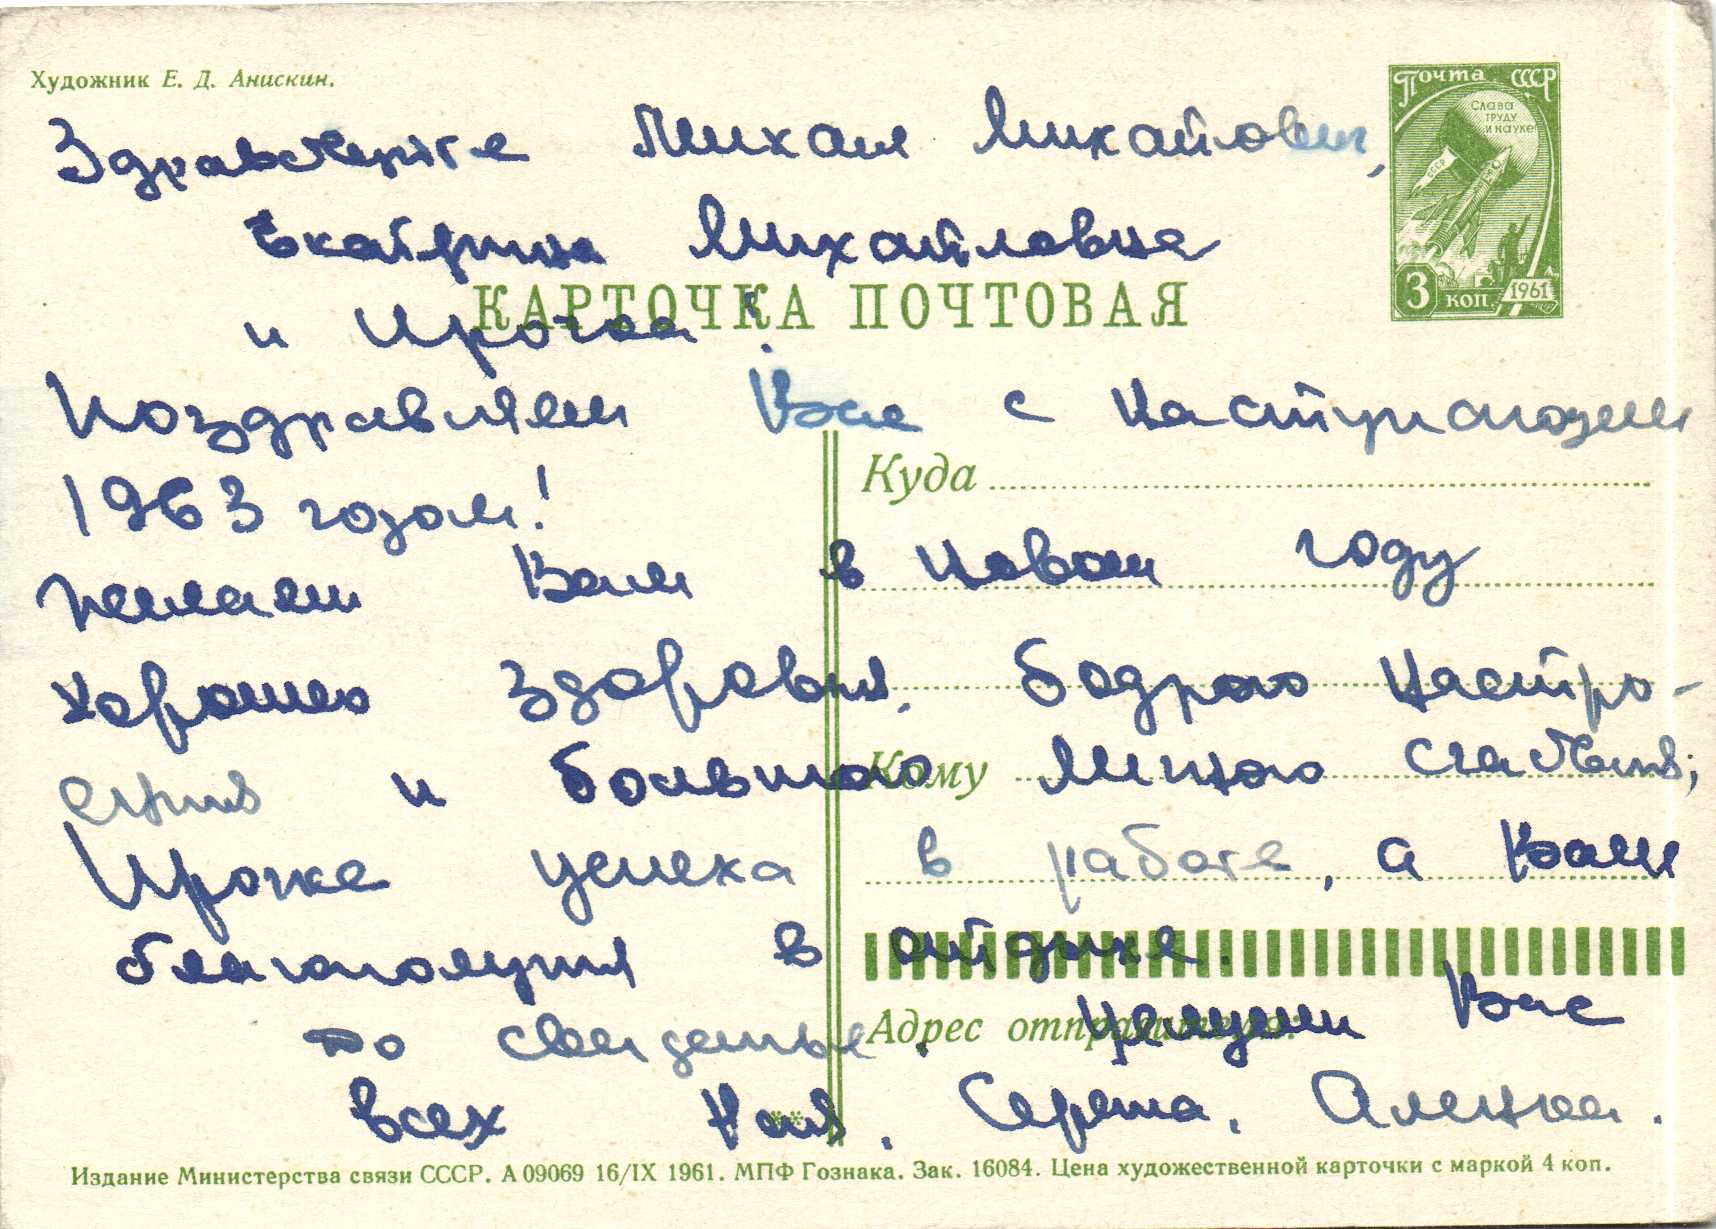 Художник Е. Д. Анискин.
Почта СССР
Слава
труду
и науке
СССР
3 коп. 1961
Здравствуйте Михаил Михайлович,
Екатерина Михайловна
КАРТОЧКА ПОЧТОВАЯ
и Ирочка!
Поздравляем Вас с наступающим
Куда
1963 годом!
Желаем Вам в Новом году
хорошего здоровья, бодрого настро-
Кому
ения и большого личного счастья;
Ирочке успеха в работе, а Вам
благополучия в отдыхе.
Адрес отправителя:
До свиданья. Целуем Вас
всех Сережа, Аленка.
Издание Министерства связи СССР. А 09069 16/IX 1961. МПФ Гознака. Зак. 16084. Цена художественной карточки с маркой 4 коп.